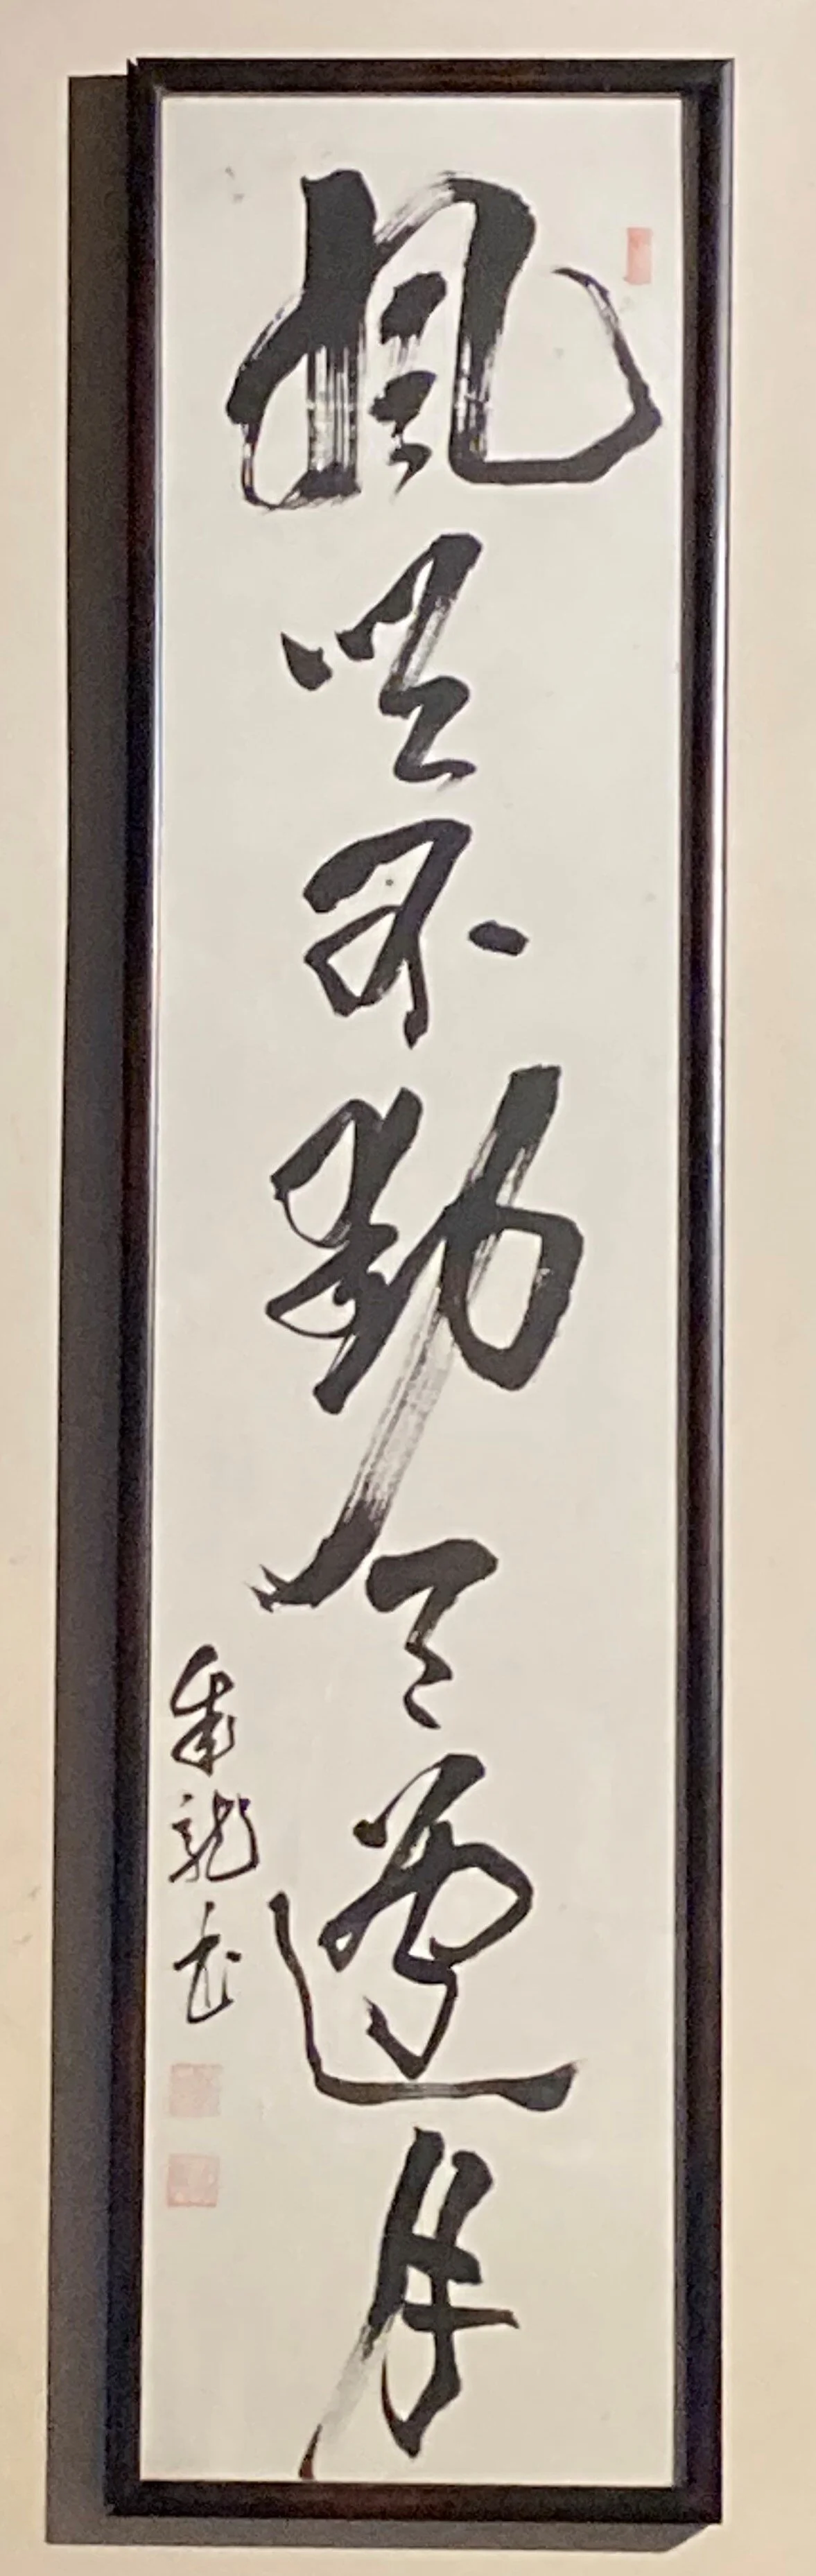 風吹不動天邊月